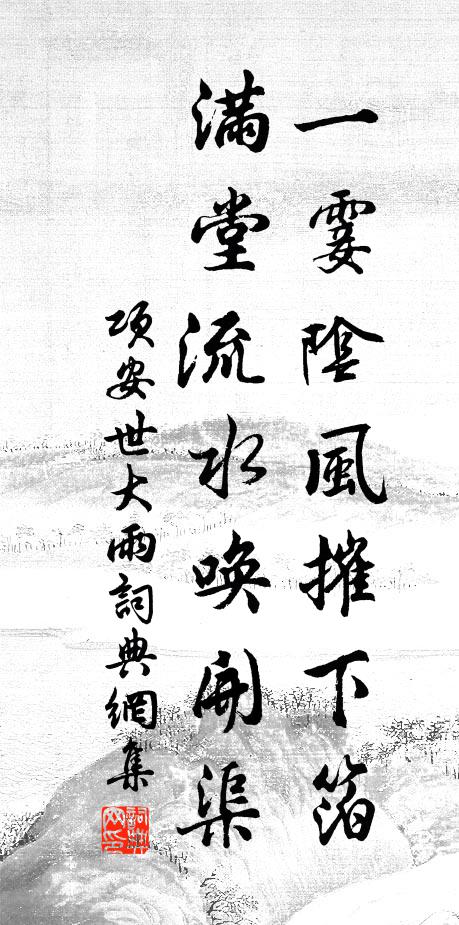 一霎陰風摧下箔
滿堂流水喚開渠
項安世大雨詞典網集